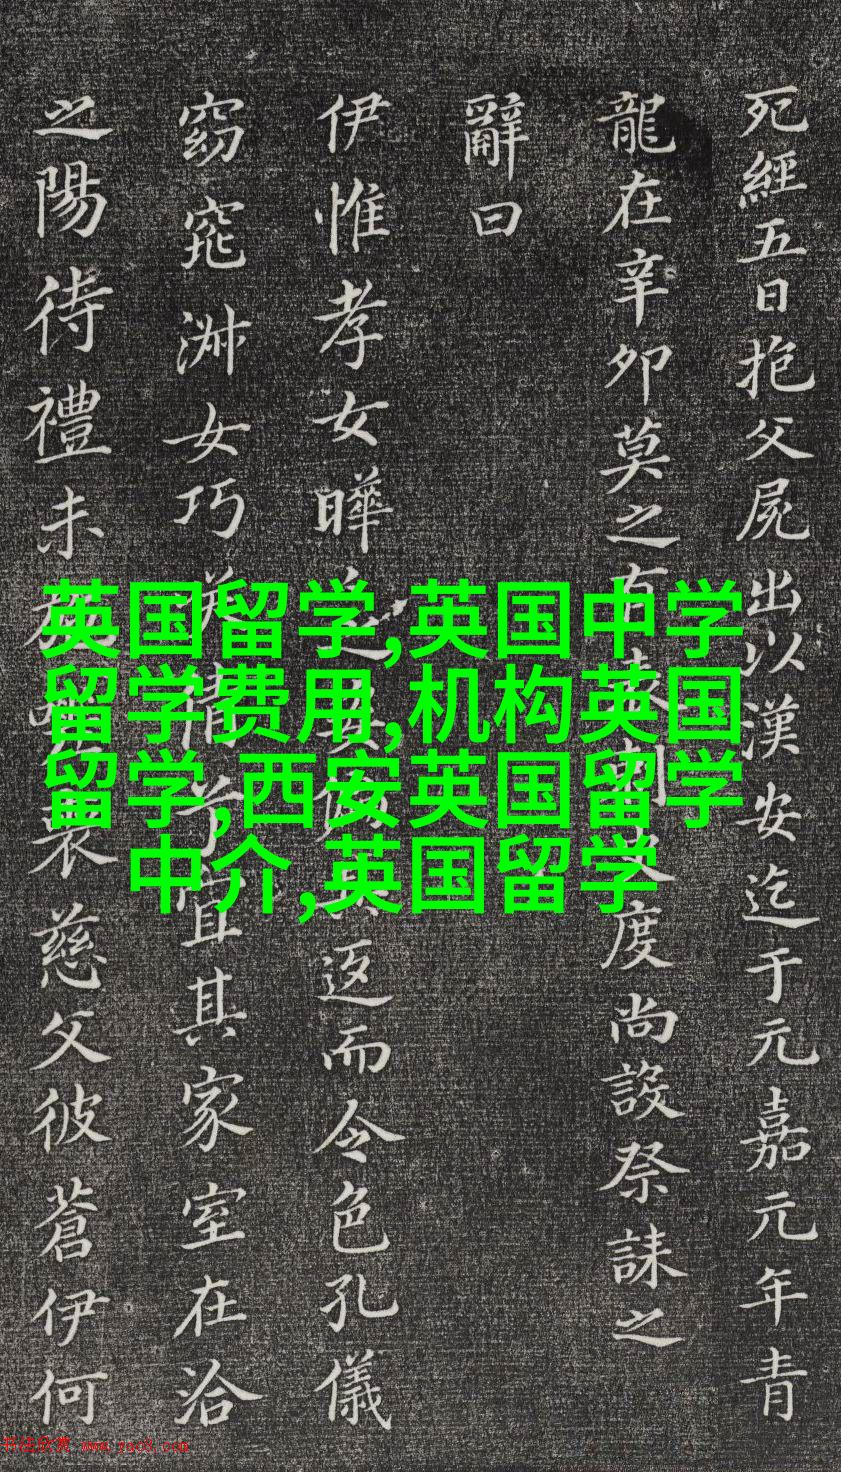 死經五日抱父屍出以漢安迄于元嘉元年青
龍在辛卯莫之有度尚設祭誄之
辭曰
伊惟孝女曄返而令色孔儀
窈窕淑女巧宜其家室在洽
之陽待禮未慈父彼蒼伊何
英国留学,英国中学
留学费用,机构英国
留学,西安英国留学
中介,英国留学